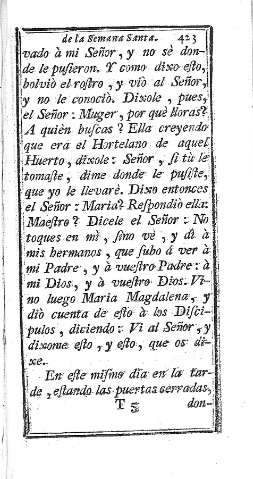 de la Semana Santa. 423
vado à mi Señor, y no sè don-
de le puſieron. Y como dixo eſto,
bolviò el roſtro, y viò al Señor,
y no le conociò. Dixole, pues,
el Señor: Muger, por què lloras?
A quièn buſcas? Ella creyendo
que era el Hortelano de aquel
Huerto, dixole: Señor, ſi tù le
tomaſte, dime donde le puſiſte,
que yo le llevarè. Dixo entonces
el Señor: Maria? Reſpondiò ella:
Maeſtro? Dicele el Señor: No
toques en mì, ſino vè, y dì à
mis hermanos, que ſubo à vèr à
mi Padre, y à vueſtro Padre: à
mi Dios, y à vueſtro Dios. Vi-
no luego Maria Magdalena, y
diò cuenta de eſto à los Diſci-
pulos, diciendo: Vi al Señor, y
dixome eſto, y eſto, que os di-
xe.
En eſte miſmo dia en la tar-
de, eſtando las puertas cerradas,
T 5 don-